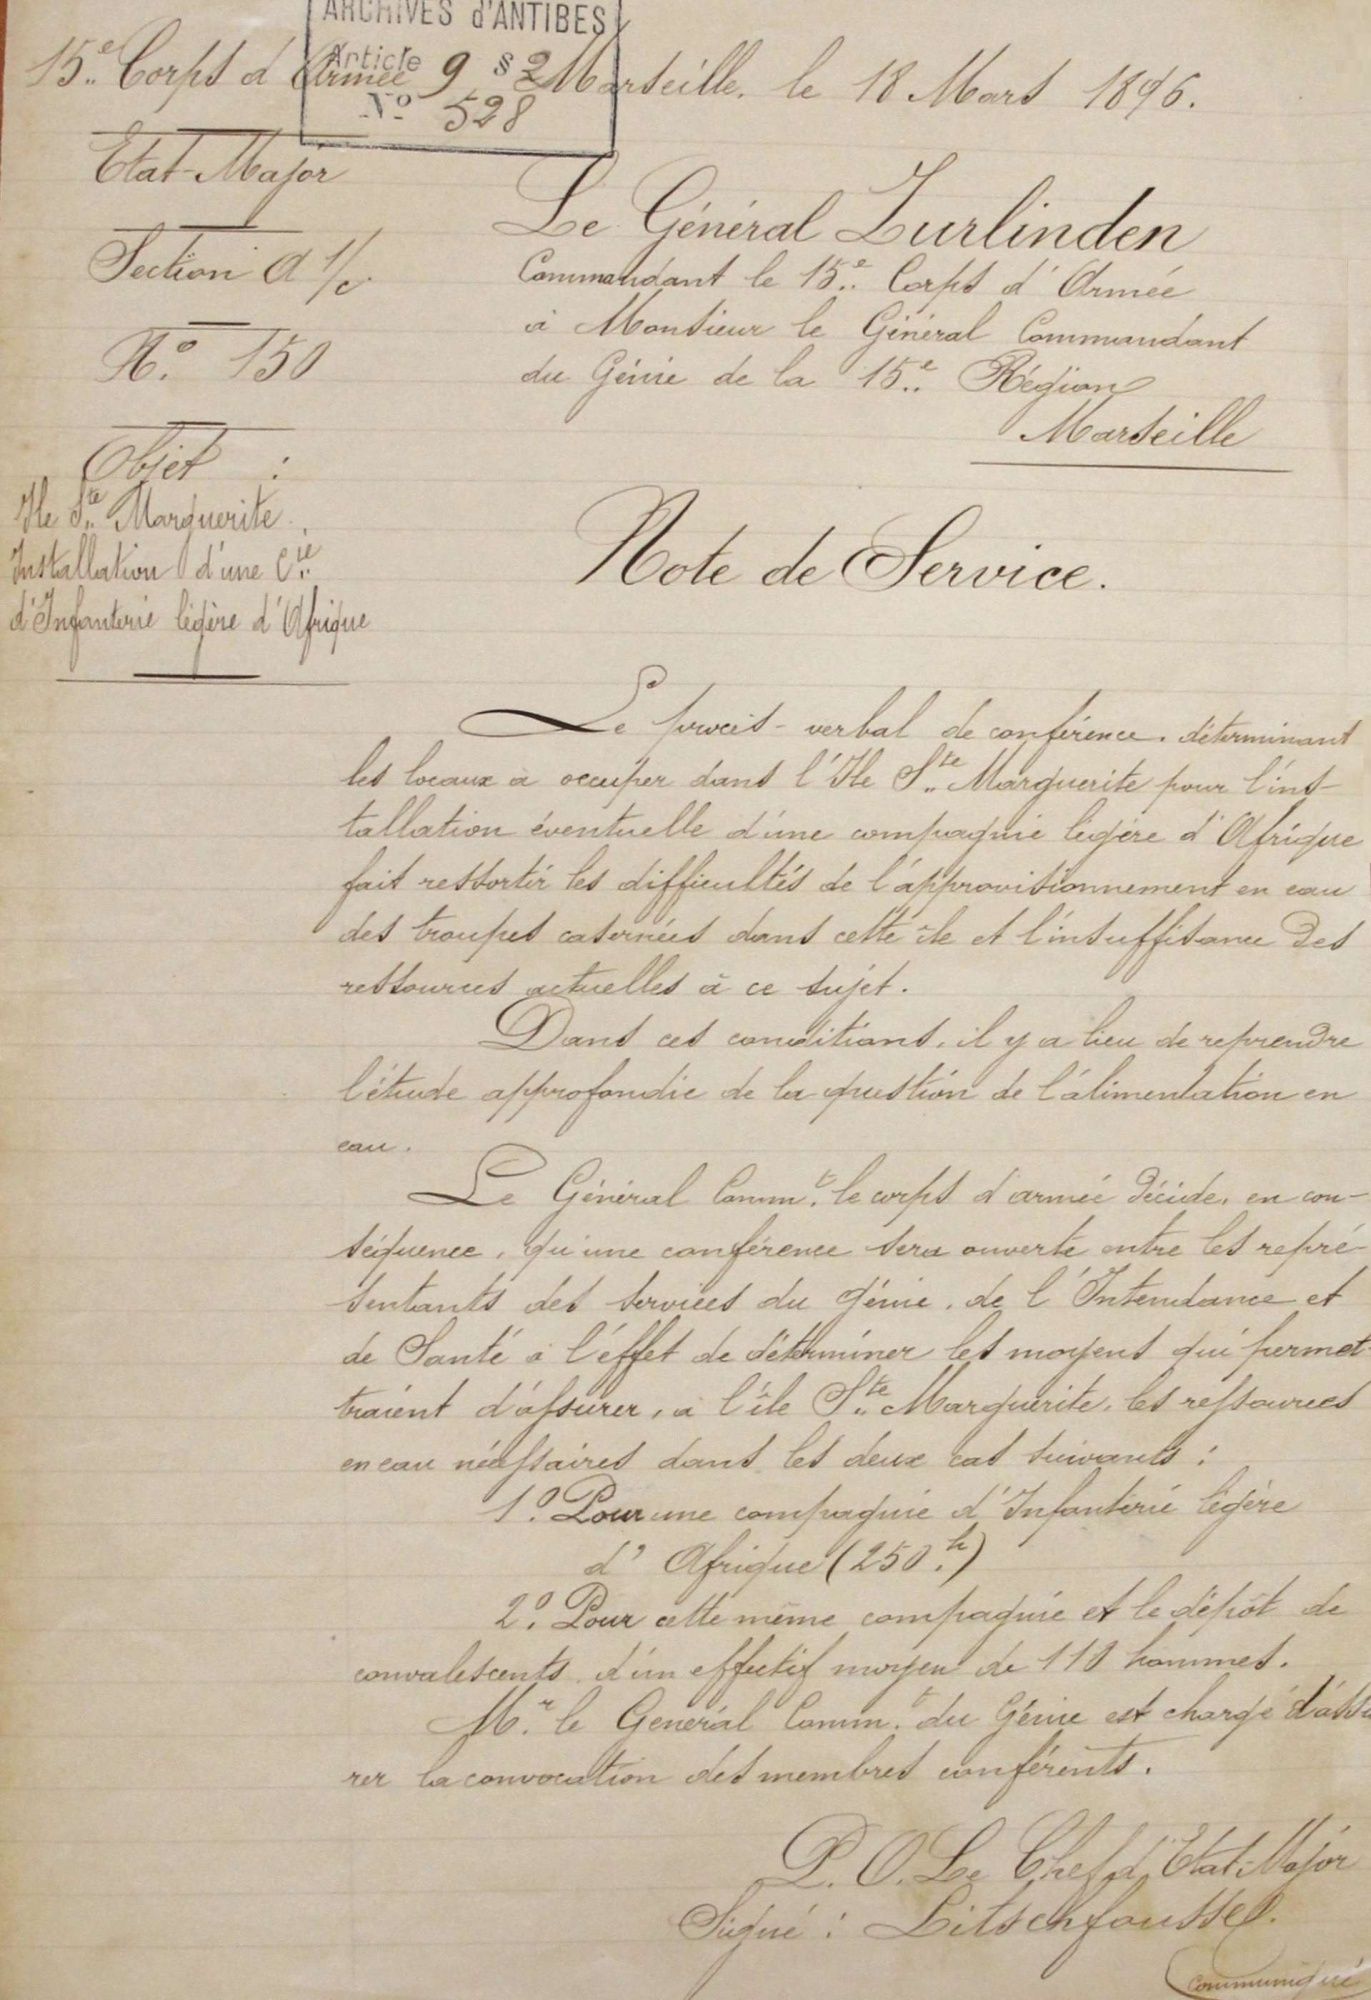 ARCHIVES d'ANTIBES
Article 9 § 2
N° 528
15e Corps d'Armée
Marseille, le 18 Mars 1896.
Etat-Major
Section A 1/c
N° 150
Objet :
Ile Ste Marguerite.
Installation d'une Cie
d'Infanterie légère d'Afrique
Le Général Zurlinden
Commandant le 15e Corps d'Armée
à Monsieur le Général Commandant
du Génie de la 15e Région
Marseille
Note de Service.
Le procès-verbal de conférence, déterminant
les locaux à occuper dans l'Ile Ste Marguerite pour l'ins-
tallation éventuelle d'une compagnie légère d'Afrique
fait ressortir les difficultés de l'approvisionnement en eau
des troupes casernées dans cette île et l'insuffisance des
ressources actuelles à ce sujet.
Dans ces conditions, il y a lieu de reprendre
l'étude approfondie de la question de l'alimentation en
eau.
Le Général Commt le corps d'armée décide, en con-
séquence, qu'une conférence sera ouverte entre les repré-
sentants des services du Génie, de l'Intendance et
de Santé à l'effet de déterminer les moyens qui permet-
traient d'assurer, à l'île Ste Marguerite, les ressources
en eau nécessaires dans les deux cas suivants :
1° Pour une compagnie d'Infanterie légère
d'Afrique (250 h)
2° Pour cette même compagnie et le dépôt de
convalescents d'un effectif moyen de 110 hommes.
Mr le Général Commt du Génie est chargé d'assu
rer la convocation des membres conférents.
P. O. Le Chef d'Etat-Major
Signé : Litschfousse.
Communiqué